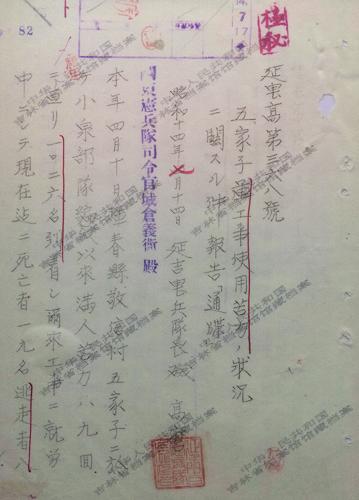 極秘
82
延憲高第三六八號
五家子工事使用苦力ノ狀況
ニ關スル件報告「通牒」
昭和十四年七月十四日 延吉憲兵隊長
關東憲兵隊司令官城倉義衛殿
本年四月十日琿春縣敬信村五家子ニ於
小泉部隊 以來滿人苦力八、九回
ニ亘リ一〇二六名 爾來工事ニ就勞
中ニシテ現在迄ニ死亡者一九名逃走者八
中华人民共和国
吉林省档案馆馆藏档案